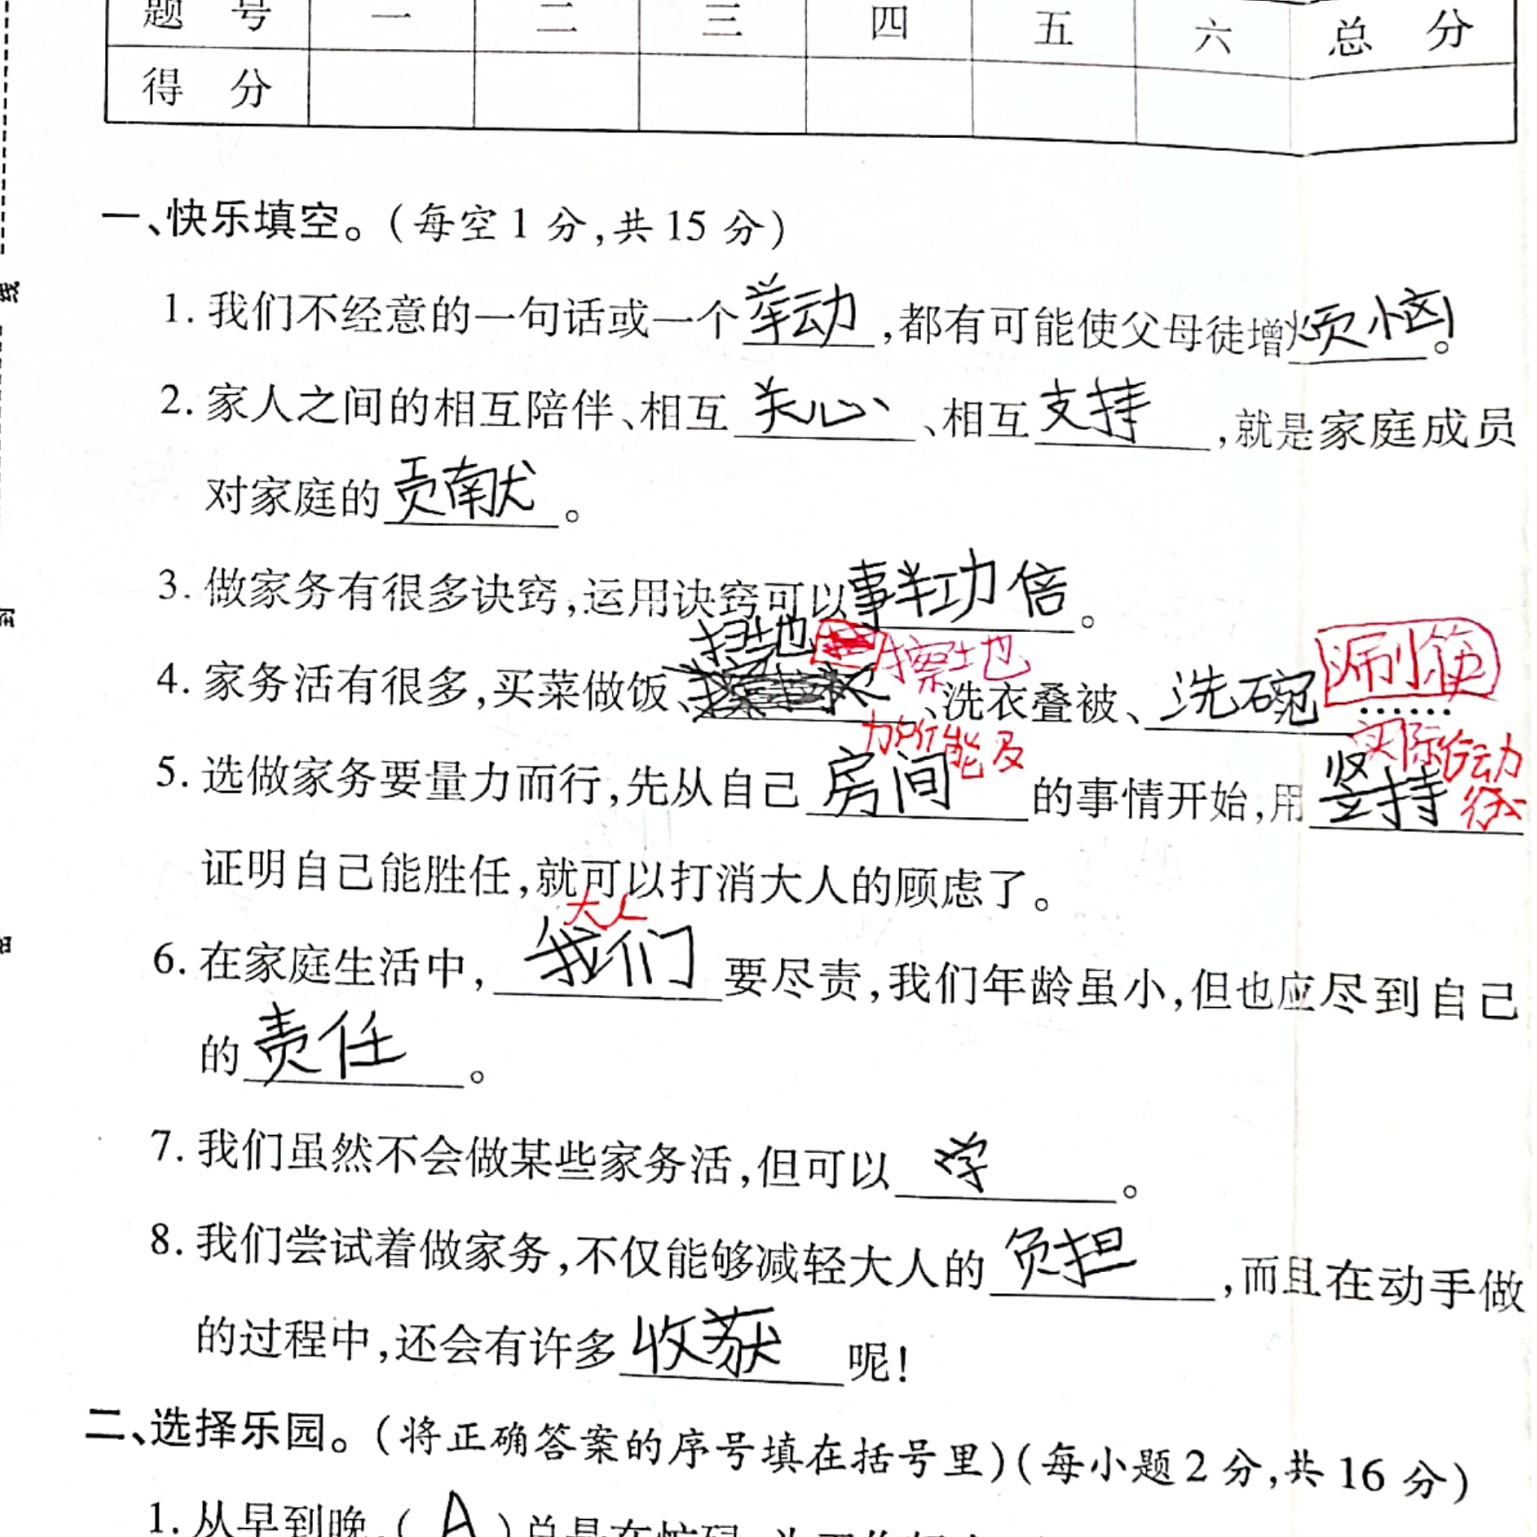 题 号 一 二 三 四 五 六 总 分
得 分
一、快乐填空。(每空1分,共15分)
1. 我们不经意的一句话或一个举动,都有可能使父母徒增烦恼。
2. 家人之间的相互陪伴、相互关心、相互支持,就是家庭成员
对家庭的贡献。
扫地 擦地 涮筷
3. 做家务有很多诀窍,运用诀窍可以事半功倍。
4. 家务活有很多,买菜做饭、、洗衣叠被、洗碗……
力所能及 实际行动
5. 选做家务要量力而行,先从自己房间的事情开始,用坚持
证明自己能胜任,就可以打消大人的顾虑了。
大人
6. 在家庭生活中,我们要尽责,我们年龄虽小,但也应尽到自己
的责任。
7. 我们虽然不会做某些家务活,但可以学。
8. 我们尝试着做家务,不仅能够减轻大人的负担,而且在动手做
的过程中,还会有许多收获呢!
二、选择乐园。(将正确答案的序号填在括号里)(每小题2分,共16分)
1. 从早到晚,(A)总是在忙碌
线
封
密